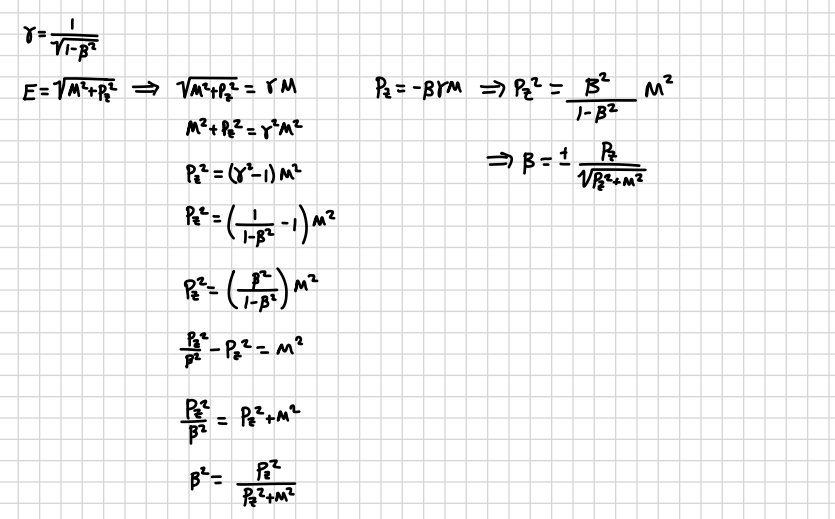 γ = 1/√(1-β²)
E = √(M²+P_z²) ⟹ √(M²+P_z²) = γM
M²+P_z² = γ²M²
P_z² = (γ²-1)M²
P_z² = (1/(1-β²) -1)M²
P_z² = (β²/(1-β²))M²
P_z²/β² - P_z² = M²
P_z²/β² = P_z²+M²
β² = P_z²/(P_z²+M²)
P_z = -βγM ⟹ P_z² = β²/(1-β²) M²
⟹ β = ± P_z/√(P_z²+M²)